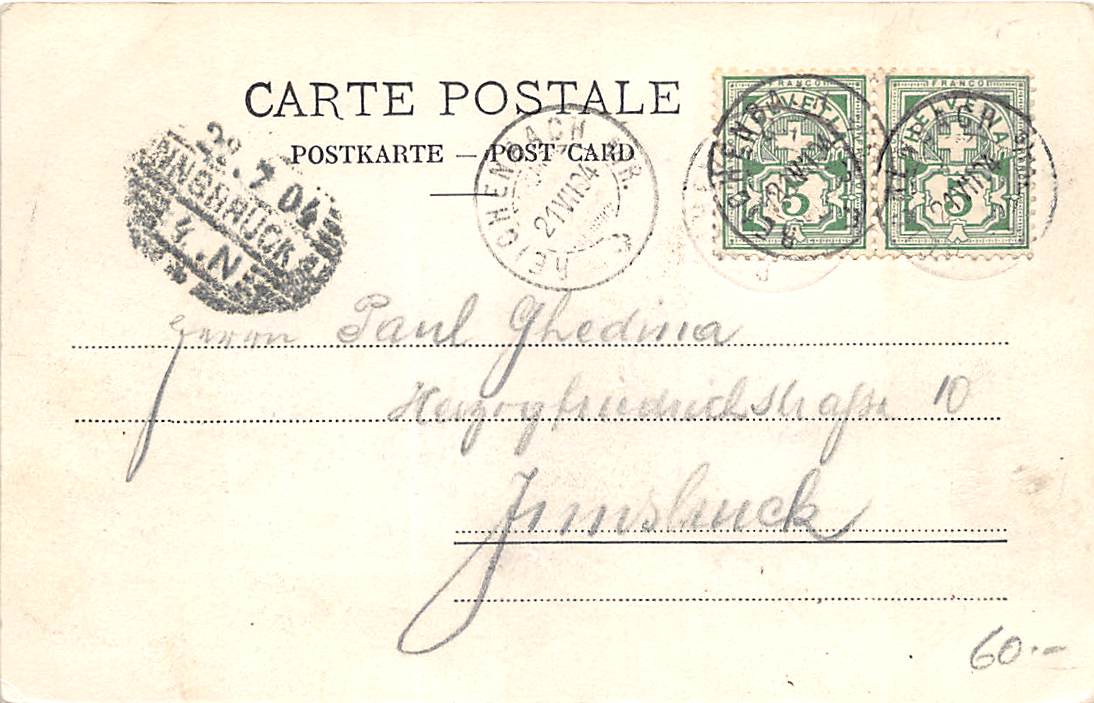 CARTE POSTALE
POSTKARTE – POST CARD
REICHENBACH BR.
21 VII 04
FRANCO
HELVETIA
5
FRANCO
HELVETIA
5
22.7.04
INNSBRUCK
Herrn Paul Ghedina
Herzogfriedrichstraße 10
Innsbruck
60.–